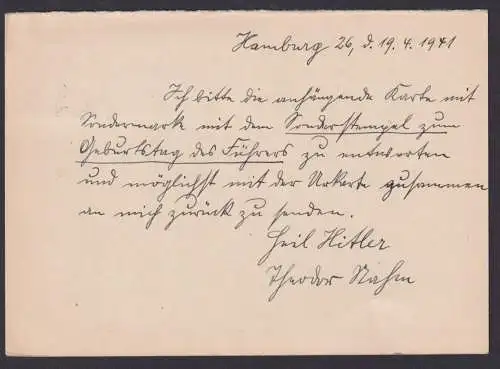 Hamburg 26, d. 19. 4. 1941
Ich bitte die anhängende Karte mit
Sondermark mit dem Sonderstempel zum
Geburtstag des Führers zu entwerten
und möglichst mit der Urkarte zusammen
an mich zurück zu senden.
Heil Hitler
Theodor